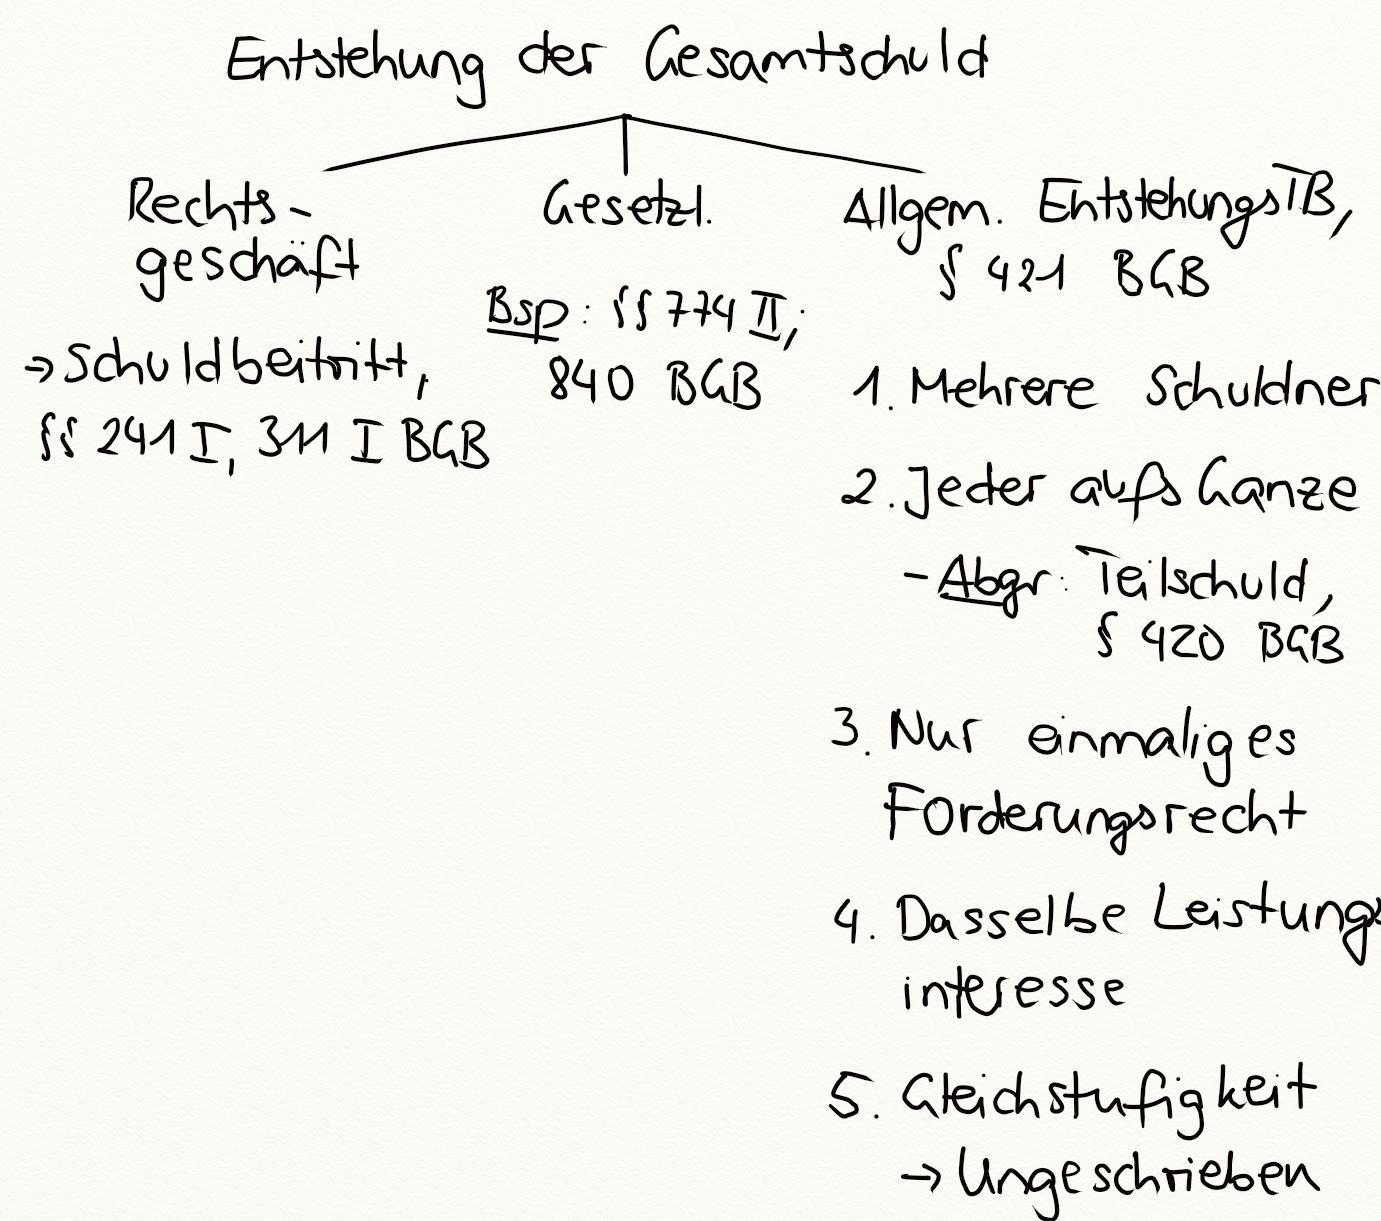 Entstehung der Gesamtschuld
Rechts-
geschäft
→ Schuldbeitritt,
§§ 241 I, 311 I BGB
Gesetzl.
Bsp: §§ 774 II;
840 BGB
Allgem. EntstehungsTB,
§ 421 BGB
1. Mehrere Schuldner
2. Jeder aufs Ganze
- Abgr: Teilschuld,
§ 420 BGB
3. Nur einmaliges
Forderungsrecht
4. Dasselbe Leistungs
interesse
5. Gleichstufigkeit
→ Ungeschrieben